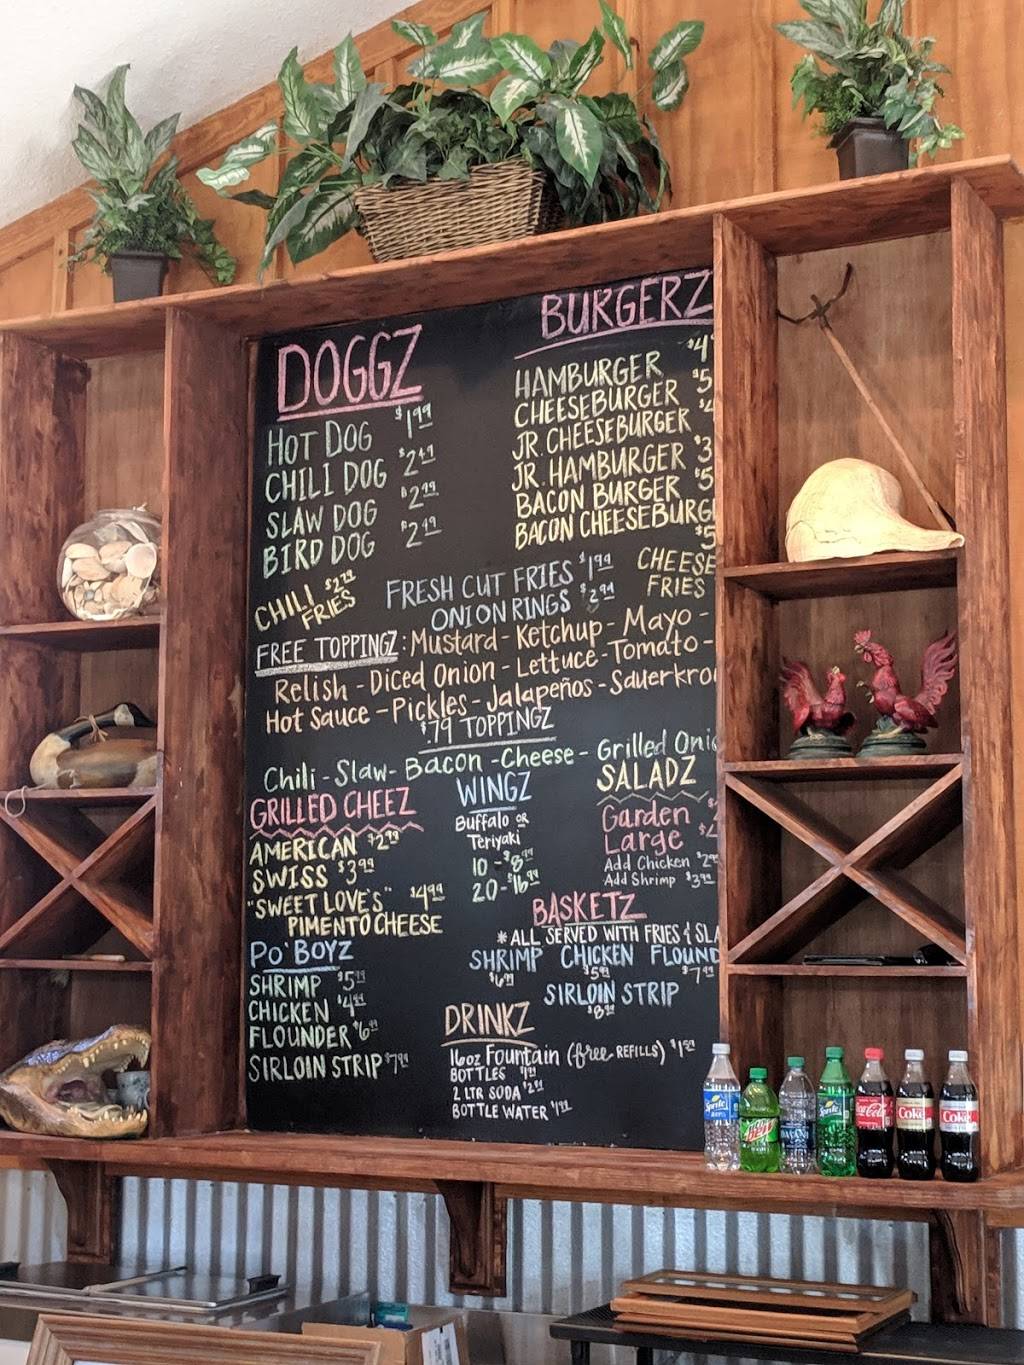 DOGGZ
HOT DOG $1.99
CHILI DOG $2.49
SLAW DOG $2.99
BIRD DOG $2.49
BURGERZ
HAMBURGER $4
CHEESEBURGER $5
JR. CHEESEBURGER $4
JR. HAMBURGER $3
BACON BURGER $5
BACON CHEESEBURG
$5
CHILI $2.79
FRIES
FRESH CUT FRIES $1.99
ONION RINGS $2.99
CHEESE
FRIES
FREE TOPPINGZ: Mustard - Ketchup - Mayo -
Relish - Diced Onion - Lettuce - Tomato -
Hot Sauce - Pickles - Jalapeños - Sauerkro
$.79 TOPPINGZ
Chili - Slaw - Bacon - Cheese - Grilled Onio
GRILLED CHEEZ
AMERICAN $2.99
SWISS $3.99
"SWEET LOVE'S" $4.99
PIMENTO CHEESE
WINGZ
Buffalo OR
Teriyaki
10 - $8.99
20 - $16.99
SALADZ
Garden
Large $4
Add Chicken $2.99
Add Shrimp $3.99
PO'BOYZ
SHRIMP $5.99
CHICKEN $4.99
FLOUNDER $6.99
SIRLOIN STRIP $7.99
BASKETZ
*ALL SERVED WITH FRIES & SLA
SHRIMP CHICKEN FLOUND
$6.99 $5.99 $7.99
SIRLOIN STRIP
$8.99
DRINKZ
16oz Fountain (free REFILLS) $1.59
BOTTLES
2 LTR SODA
BOTTLE WATER
Sprite
Mtn Dew
DASANI
Sprite
Coca-Cola
Coke
Coke